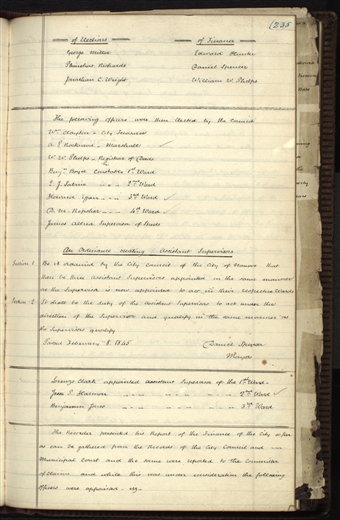 (235
of Elections of Finance
George Miller Edward Hunter
Phinehas Richards Daniel Spencer
Jonathan C. Wright William W. Phelps
The following officers were then elected by the Council
Wm. Clayton - City Treasurer
O. P. Rockwood - Marshall
W. W. Phelps - Register of Deeds
Benjn. Boyce Constable 1st Ward
" " 2nd Ward
Howard " " 3rd Ward
" " 4th Ward
James Supervisor of Streets
An Ordinance creating Assistant Supervisors
Section 1 Be it ordained by the City Council of the City of Nauvoo that
there be three Assistant Supervisors appointed in the same manner
as the Supervisor is now appointed to act in their respective Wards
Section 2 It shall be the duty of the Assistant Supervisors to act under the
direction of the Supervisor and qualify in the same manner as
the Supervisors qualify
Passed February 8. 1845
Daniel Spencer
Mayor
Lorenzo Clark appointed Assistant Supervisor of the 1st Ward.
Jesse P. Harmon " " " " 2nd Ward
Benjamin Jones " " " " 3rd Ward
The Recorder presented his Report of the Finance of the City as far
as can be gathered from the Records of the City Council and
Municipal Court and the same were reported to the Committee
of Claims and while this was under consideration the following
officers were appointed. viz.